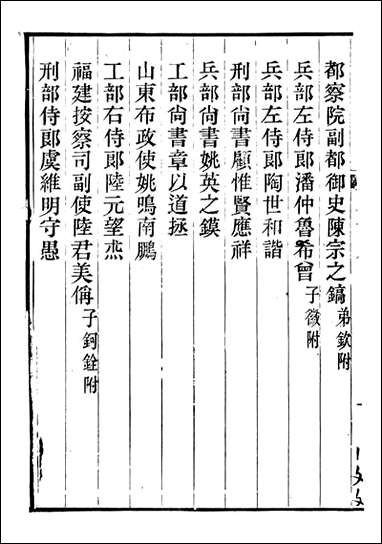 都察院副都御史陳宗之鎬弟欽附
兵部左侍郎潘仲魯希曾子徵附
兵部左侍郎陶世和諧
刑部尚書顧惟賢應祥
兵部尚書姚英之鏌
工部尚書章以道拯
山東布政使姚鳴南鵬
工部右侍郎陸元望杰
福建按察司副使陸君美偁子釴銓附
刑部侍郎虞維明守愚